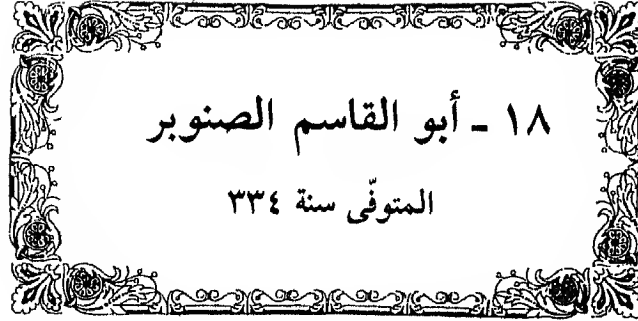 ١٨ - أبو القاسم الصنوبر
المتوفّى سنة ٣٣٤